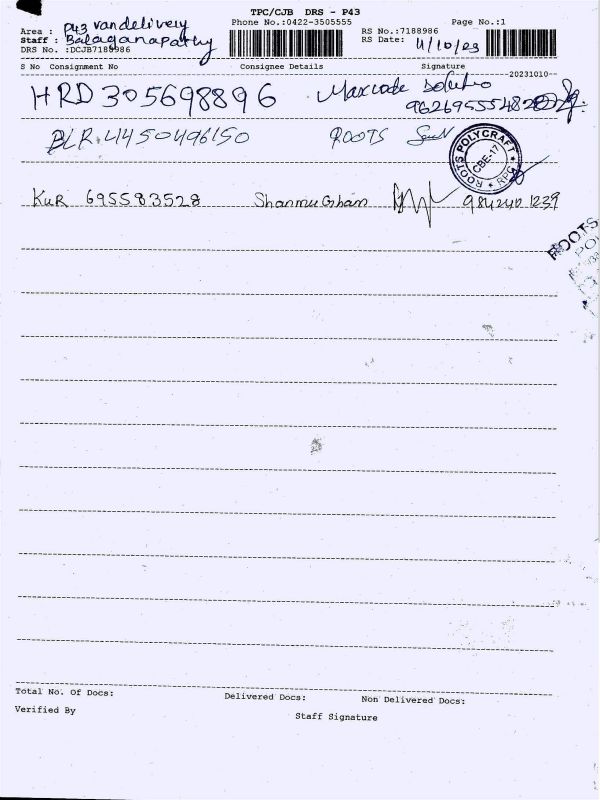 TPC/CJB DRS - P43
Area : P43 vandelivery Phone No.:0422-3505555 Page No.:1
Staff : Balaganapathy RS No.:7188986
DRS No. :DCJB7188986 RS Date: 11/10/23
S No Consignment No Consignee Details Signature
--20231010--
HRD 305698896 Maxcode
BLR 41450496150 ROOTS
ROOTS POLYCRAFT
CBE-17
RPC
KUR 695583528 Shanmugham 9842401239
ROOTS
Total No. Of Docs: Delivered Docs: Non Delivered Docs:
Verified By Staff Signature